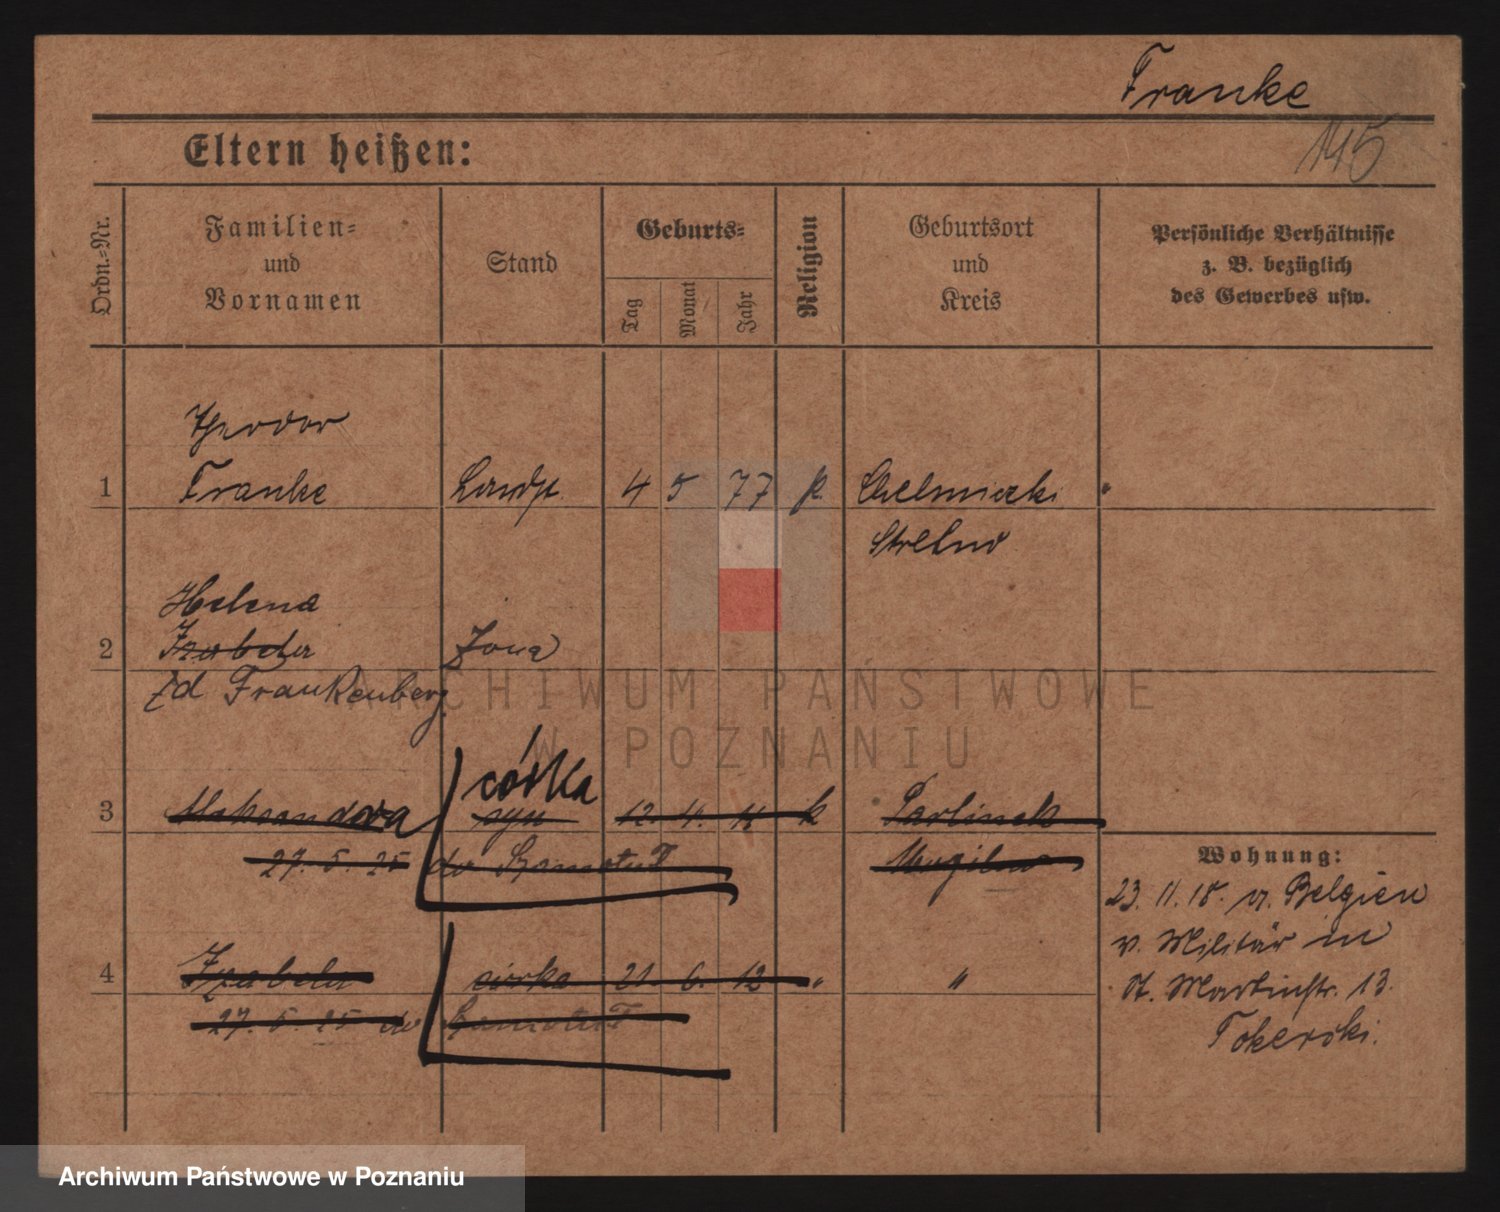 Franke
145
Eltern heißen:
Ordn.=Nr.
Familien=
und
Vornamen
Stand
Geburts=
Tag
Monat
Jahr
Religion
Geburtsort
und
Kreis
Persönliche Verhältnisse
z. B. bezüglich
des Gewerbes usw.
Theodor
1 Franke Landp. 4 5 77 k. Chelmiczki
Strelno
Helena
2 Izabela żona
zd Frankenberg
córka
3 Aleksandra syn 12. 4. 11 k Parlinek
27. 5. 25 do Szamotuł Mogilno
4 Izabela córka 21. 6. 12 " "
27. 5. 25 do Szamotuł
Wohnung:
23. 11. 18. v. Belgien
v. Militär in
St. Martinstr. 13.
Tokerski.
ARCHIWUM PAŃSTWOWE
W POZNANIU
Archiwum Państwowe w Poznaniu